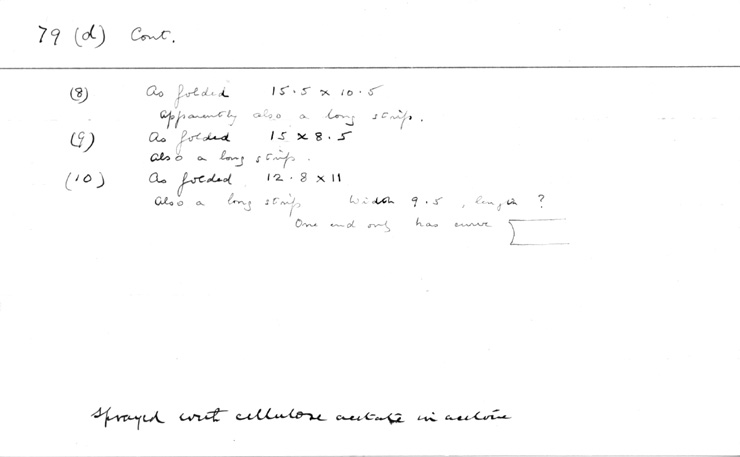 79 (d) Cont.
(8) As folded 15.5 x 10.5
apparently also a long strip.
(9) As folded 15 x 8.5
also a long strip.
(10) As folded 12.8 x 11
Also a long strip Width 9.5, length ?
One end only has curve
Sprayed with cellulose acetate in acetone